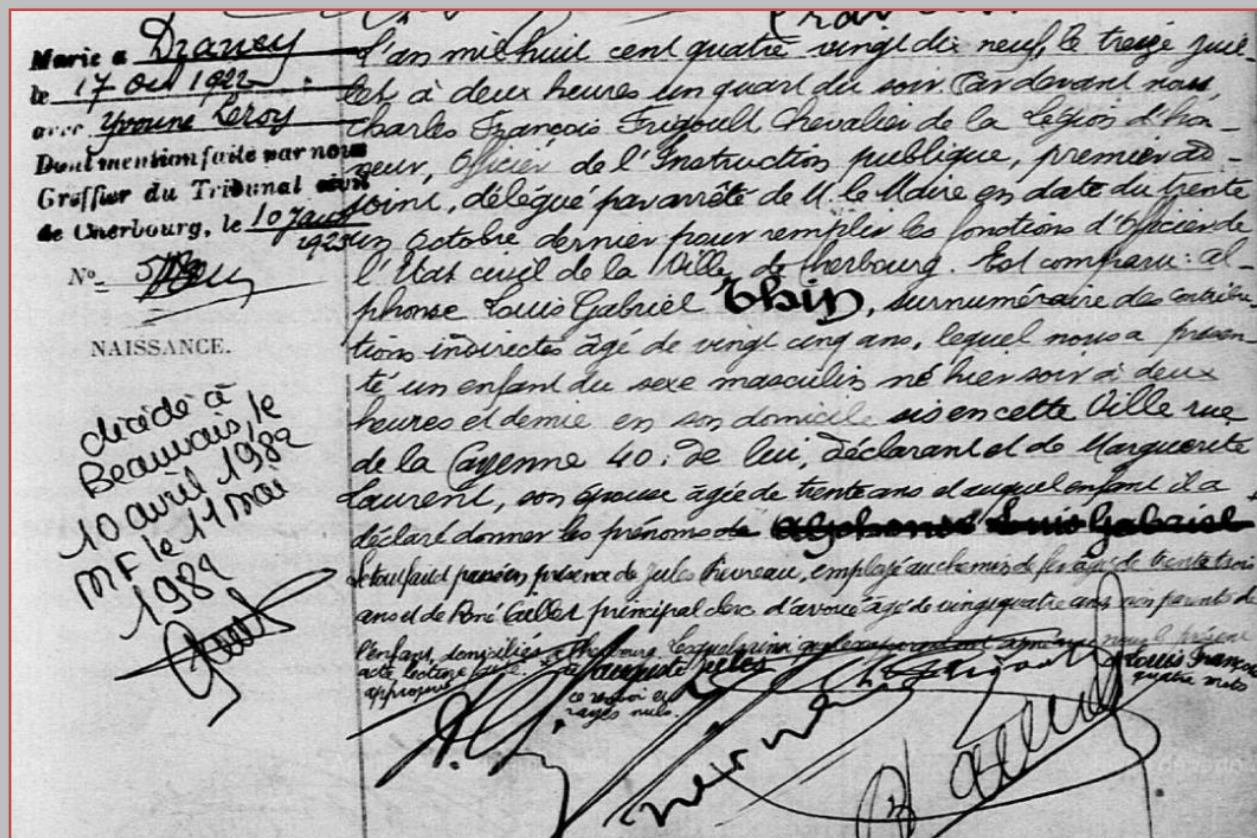 Marié à Drancy
le 17 Oct 1922
avec Yvonne Leroy
Dont mention faite par nous
Greffier du Tribunal civil
de Cherbourg, le 10 Janv
1923
N°
NAISSANCE.
décédé à
Beauvais, le
10 avril 1982
MF le 11 mai
1982
L'an mil huit cent quatre vingt dix neuf, le treize juil-
let à deux heures un quart du soir. Par devant nous,
Charles François Frigoult Chevalier de la Légion d'hon-
neur, Officier de l'Instruction publique, premier ad-
joint, délégué par arrêté de M. le Maire en date du trente
un Octobre dernier pour remplir les fonctions d'Officier de
l'Etat civil de la Ville de Cherbourg. Est comparu: al-
phonse Louis Gabriel Thin, surnuméraire des contribu
tions indirectes âgé de vingt cinq ans, lequel nous a présen-
té un enfant du sexe masculin né hier soir à deux
heures et demie en son domicile sis en cette Ville rue
de la Cayenne 40. de lui, déclarant et de Marguerite
Laurent, son épouse âgée de trente ans et auquel enfant il a
déclaré donner les prénoms de Alphonse Louis Gabriel
Le tout fait passé en présence de Jules employé au chemin de fer âgé de trente trois
ans et de René principal clerc d'avoué âgé de vingt quatre ans non parents de
l'enfant, domiciliés à Cherbourg. Lesquels nous le présent
acte, lecture faite. auguste jules Louis Franç
approuvé ce renvoi et quatre mots
rayés nuls.